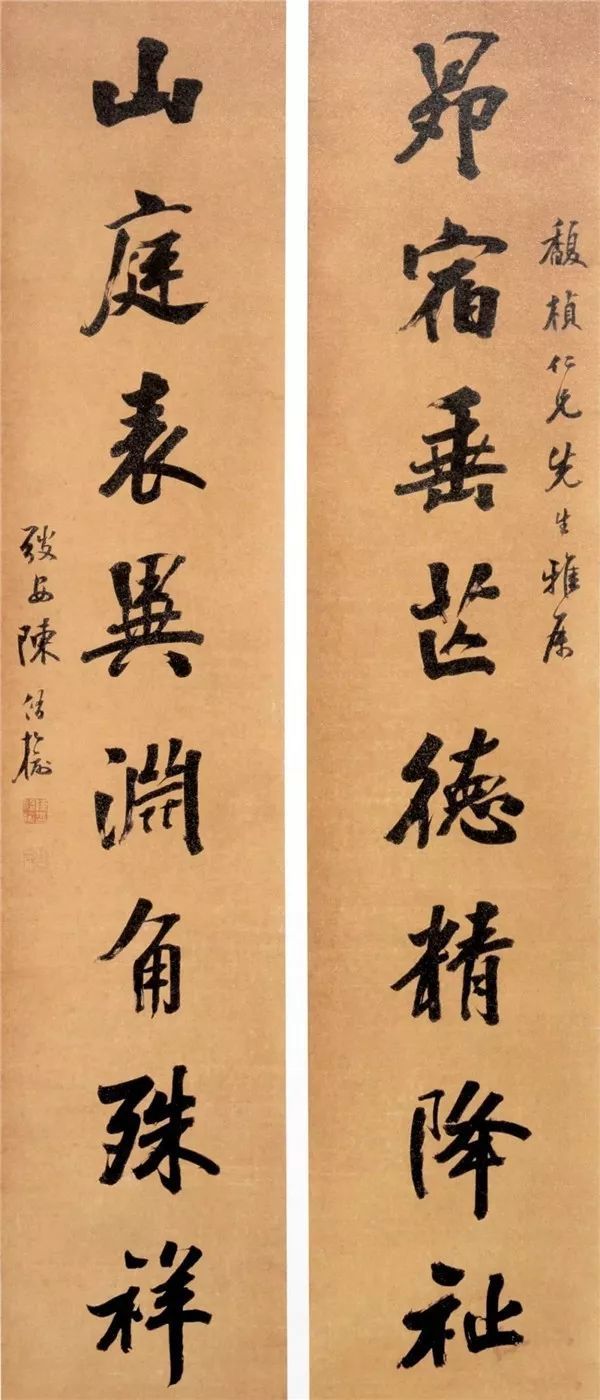 馥楨仁兄先生雅属
昴宿垂芒德精降祉
山庭表異淵角殊祥
弢安陳倚榆